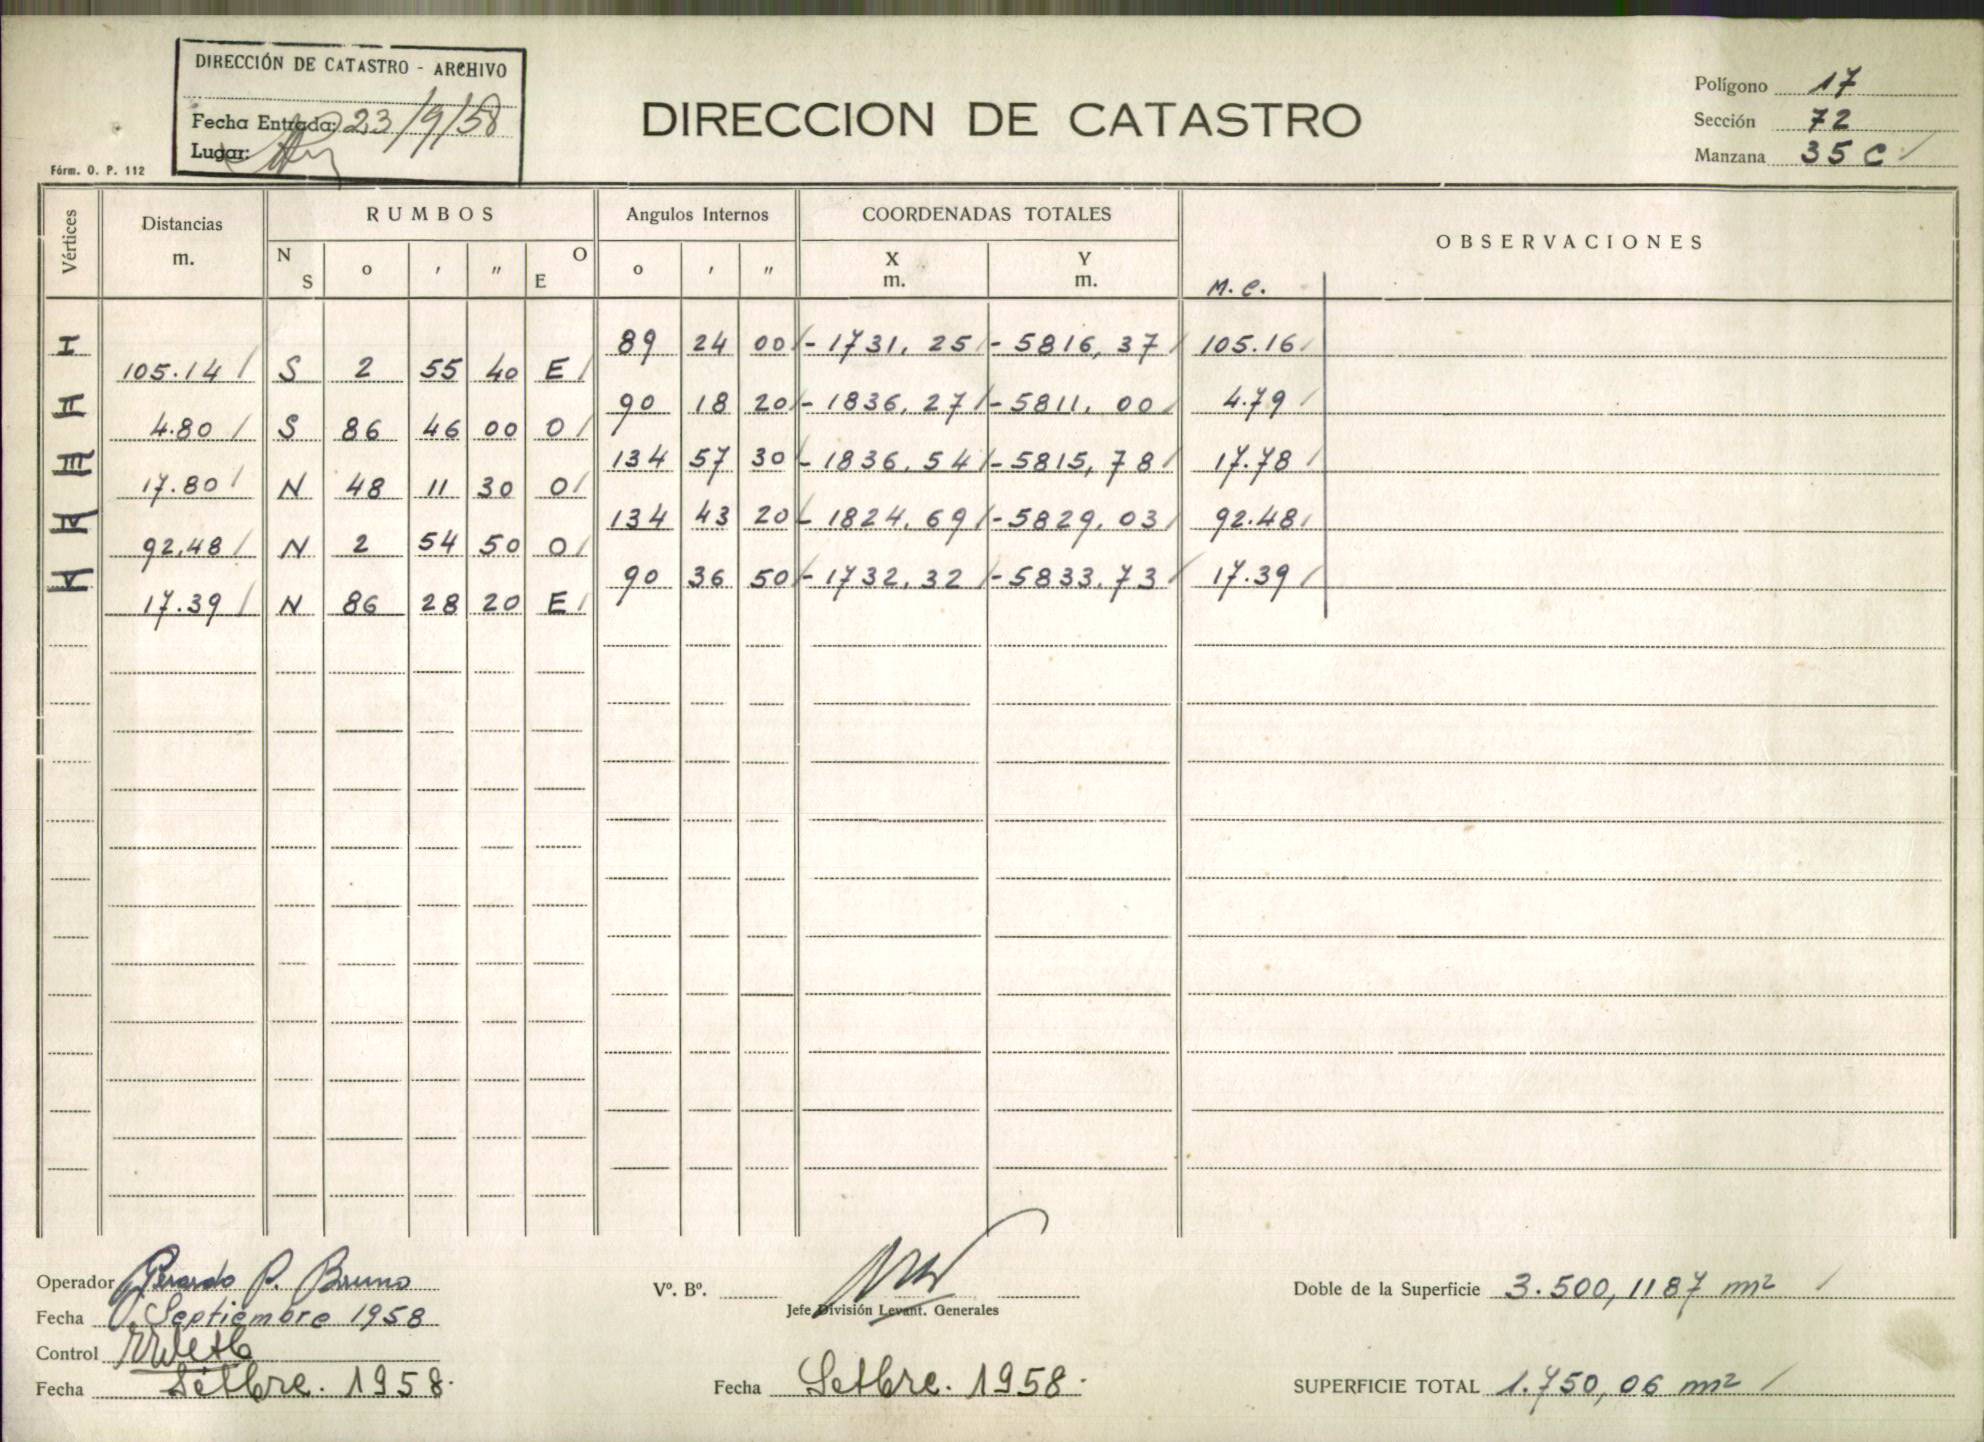 DIRECCIÓN DE CATASTRO - ARCHIVO
Fecha Entrada: 23/9/58
Lugar:
Fórm. O. P. 112
DIRECCION DE CATASTRO
Polígono 17
Sección 72
Manzana 35 C
Vértices Distancias m. RUMBOS Angulos Internos COORDENADAS TOTALES OBSERVACIONES
N S o ' " O E o ' " X m. Y m. M. C.
I 89 24 00 - 1731, 25 - 5816, 37 105.16
105.14 S 2 55 40 E
II 90 18 20 - 1836, 27 - 5811, 00 4.79
4.80 S 86 46 00 O
III 134 57 30 - 1836, 54 - 5815, 78 17.78
17.80 N 48 11 30 O
IV 134 43 20 - 1824, 69 - 5829, 03 92.48
92,48 N 2 54 50 O
V 90 36 50 - 1732, 32 - 5833.73 17.39
17.39 N 86 28 20 E
Operador Gerardo P. Bruno
Fecha Septiembre 1958
Control
Fecha Setbre. 1958.
Vº. Bº.
Jefe División Levant. Generales
Fecha Setbre. 1958.
Doble de la Superficie 3.500, 1187 m²
SUPERFICIE TOTAL 1.750, 06 m²